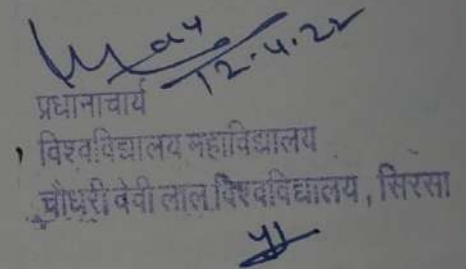 12.4.22
प्रधानाचार्य
विश्वविद्यालय महाविद्यालय
चौधरी देवी लाल विश्वविद्यालय, सिरसा